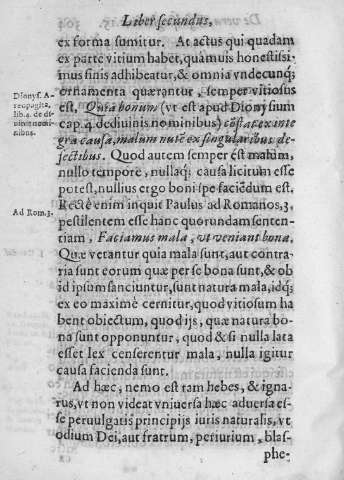 Liber secundus,
ex forma sumitur. At actus qui quadam
ex parte vitium habet, quamuis honestissi-
mus finis adhibeatur, & omnia vndecunq;
ornamenta quærantur, semper vitiosus
Dionys. A-
reopagita,
lib. 4. de di-
uinis nomi-
nibus.
est, Quia bonum (vt est apud Dionysium
cap. 4. de diuinis nominibus) cõstat ex inte
gra causa, malum autẽ ex singularibus de-
fectibus. Quod autem semper est malum,
nullo tempore, nullaq; causa licitum esse
potest, nullius ergo boni spe faciẽdum est.
Ad Rom. 3.
Rectè enim inquit Paulus ad Romanos, 3,
pestilentem esse hanc quorundam senten-
tiam, Faciamus mala, vt veniant bona,
Quæ vetantur quia mala sunt, aut contra-
ria sunt eorum quæ per se bona sunt, & ob
id ipsum sanciuntur, sunt natura mala, idq;
ex eo maximè cernitur, quod vitiosum ha
bent obiectum, quod ijs, quæ natura bo-
na sunt opponuntur, quod & si nulla lata
esset lex censerentur mala, nulla igitur
causa facienda sunt.
Ad hæc, nemo est tam hebes, & igna-
rus, vt non videat vniuersa hæc aduersa es-
se peruulgatis principijs iuris naturalis, vt
odium Dei, aut fratrum, periurium, blas-
phe-